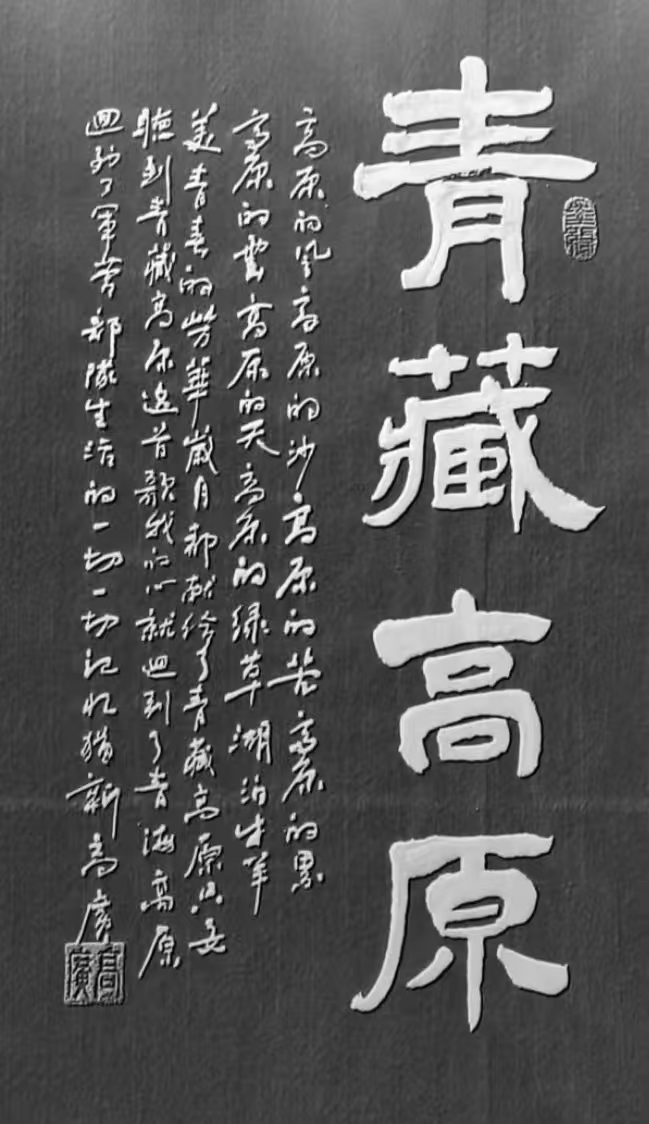 青藏高原
高原的风高原的沙高原的苦高原的累
高原的云高原的天高原的绿草湖泊牛羊
美青春的芳華歲月都献给了青藏高原只要
聴到青藏高原这首歌我的心就迴到了青海高原
迴到了軍营部隊生活的一切一切记忆犹新高廣
高廣